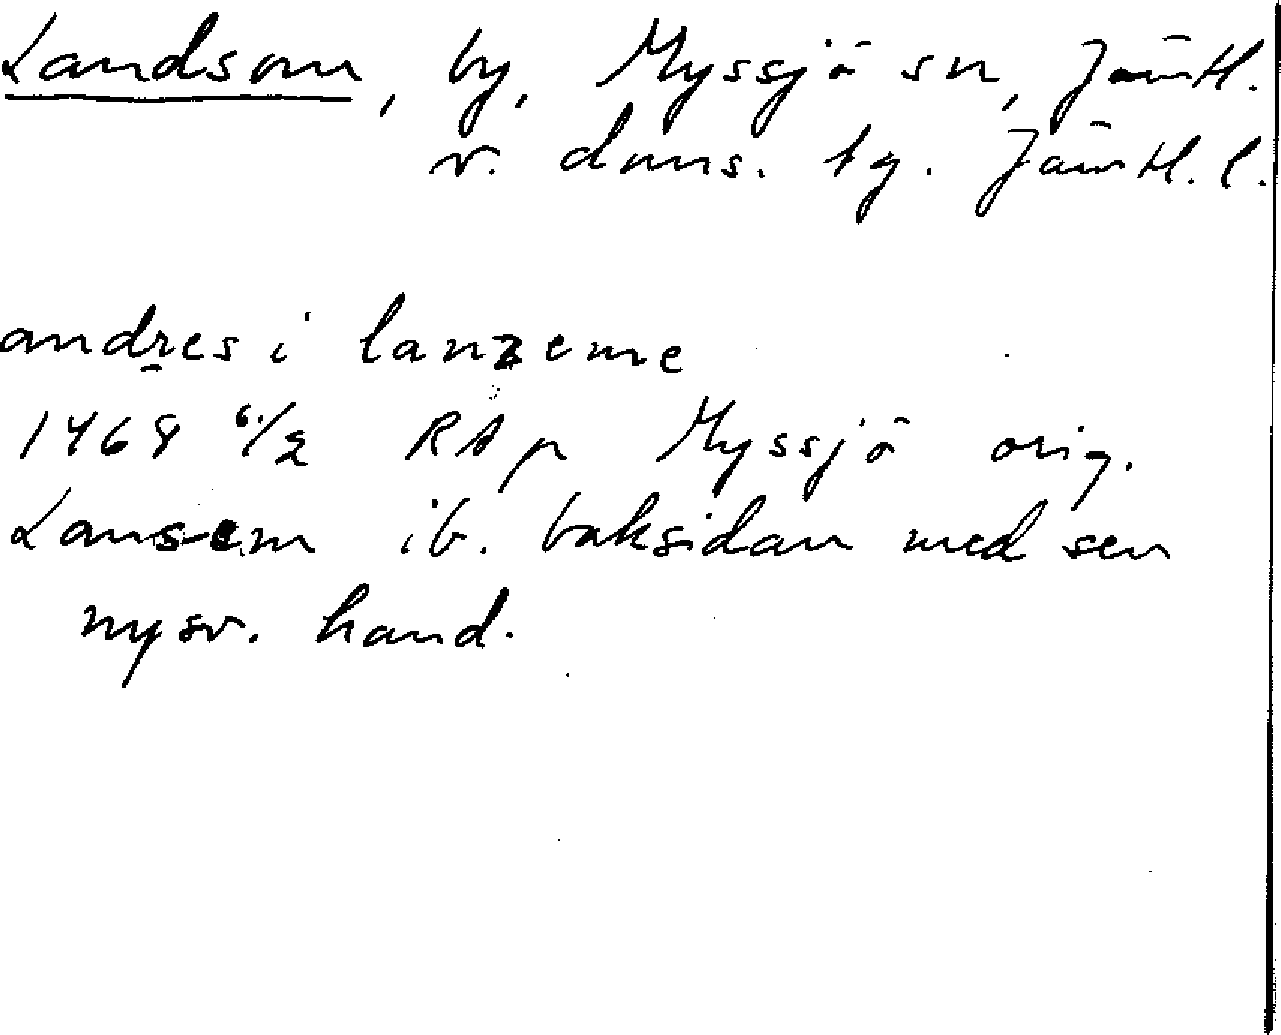 Landsom, by, Myssjö sn, Jämtl.
v. doms. tg. Jämtl. l.
andres i lanzeme
1468 6/2 RAp Myssjö orig.
Lansem ib. baksidan med sen
nysv. hand.